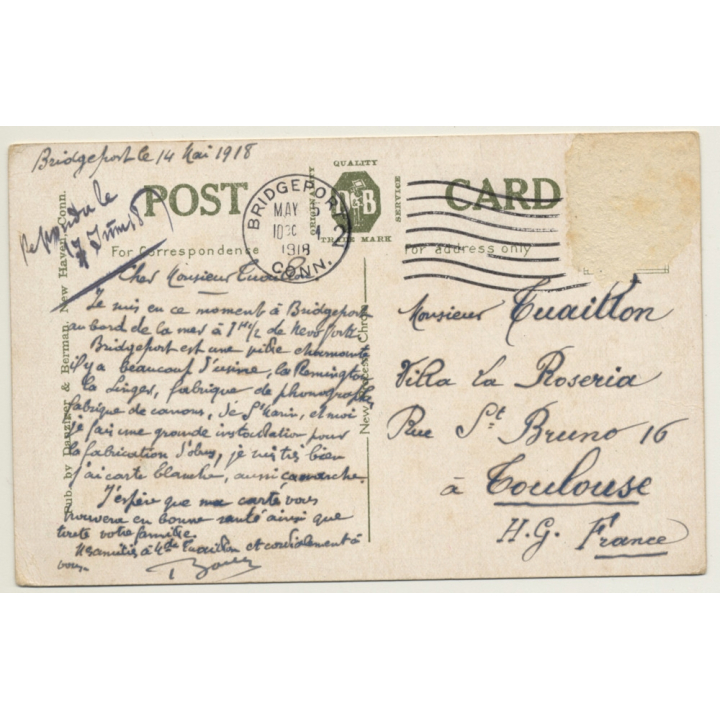 Bridgeport le 14 Mai 1918
POST CARD
QUALITY
ORIGINALITY
SERVICE
D & B
TRADE MARK
BRIDGEPORT
MAY
1918
CONN.
2
For Correspondence
For address only
Cher Monsieur Tuaillon.
Je suis en ce moment à Bridgeport
au bord de la mer à 1H1/2 de New York
Bridgeport est une ville charmante
il y a beaucoup d'usine, la Remington
la Singer, fabrique de phonographe
fabrique de canons, et moi
je fais une grande installation pour
la fabrication d'obus, je suis très bien
j'ai carte blanche, aussi ca marche.
J'espère que ma carte vous
trouvera en bonne santé ainsi que
toute votre famille.
Mes amitiés à Tuaillon et cordialement à
vous.
Monsieur Tuaillon
Villa La Roseria
Rue St Bruno 16
à Toulouse
H.G. France
Pub. by Danziger & Berman, New Haven, Conn.
New Process Chr